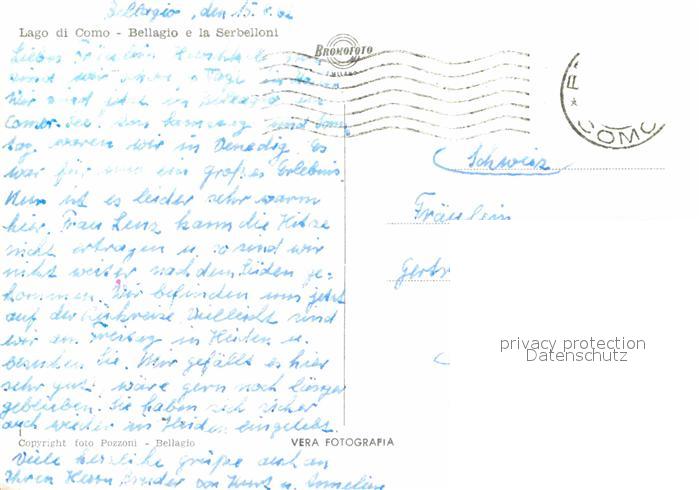 Bellagio, den 15.
Lago di Como - Bellagio e la Serbelloni
BROMOFOTO
MILANO
COMO
Liebes Fräulein
sind wir
Wir sind jetzt in Bellagio am
Comer See! am Samstag und Sonn
tag waren wir in Venedig. Es
war für uns ein großes Erlebnis.
Nun ist es leider sehr warm
hier. Frau Lenz kann die Hitze
nicht ertragen u. so sind wir
nicht weiter nach dem Süden ge-
kommen. Wir befinden uns jetzt
auf der Rückreise. Vielleicht sind
wir am Freitag in Heiden u.
besuchen Sie. Mir gefällt es hier
sehr gut, wäre gern noch länger
geblieben. Sie haben sich sicher
auch wieder in Heiden eingelebt.
Schweiz
Fräulein
Gertr
privacy protection
Datenschutz
Copyright foto Pozzoni - Bellagio
VERA FOTOGRAFIA
Viele herzliche Grüße auch an
Ihren Herrn Bruder von Kurt u.